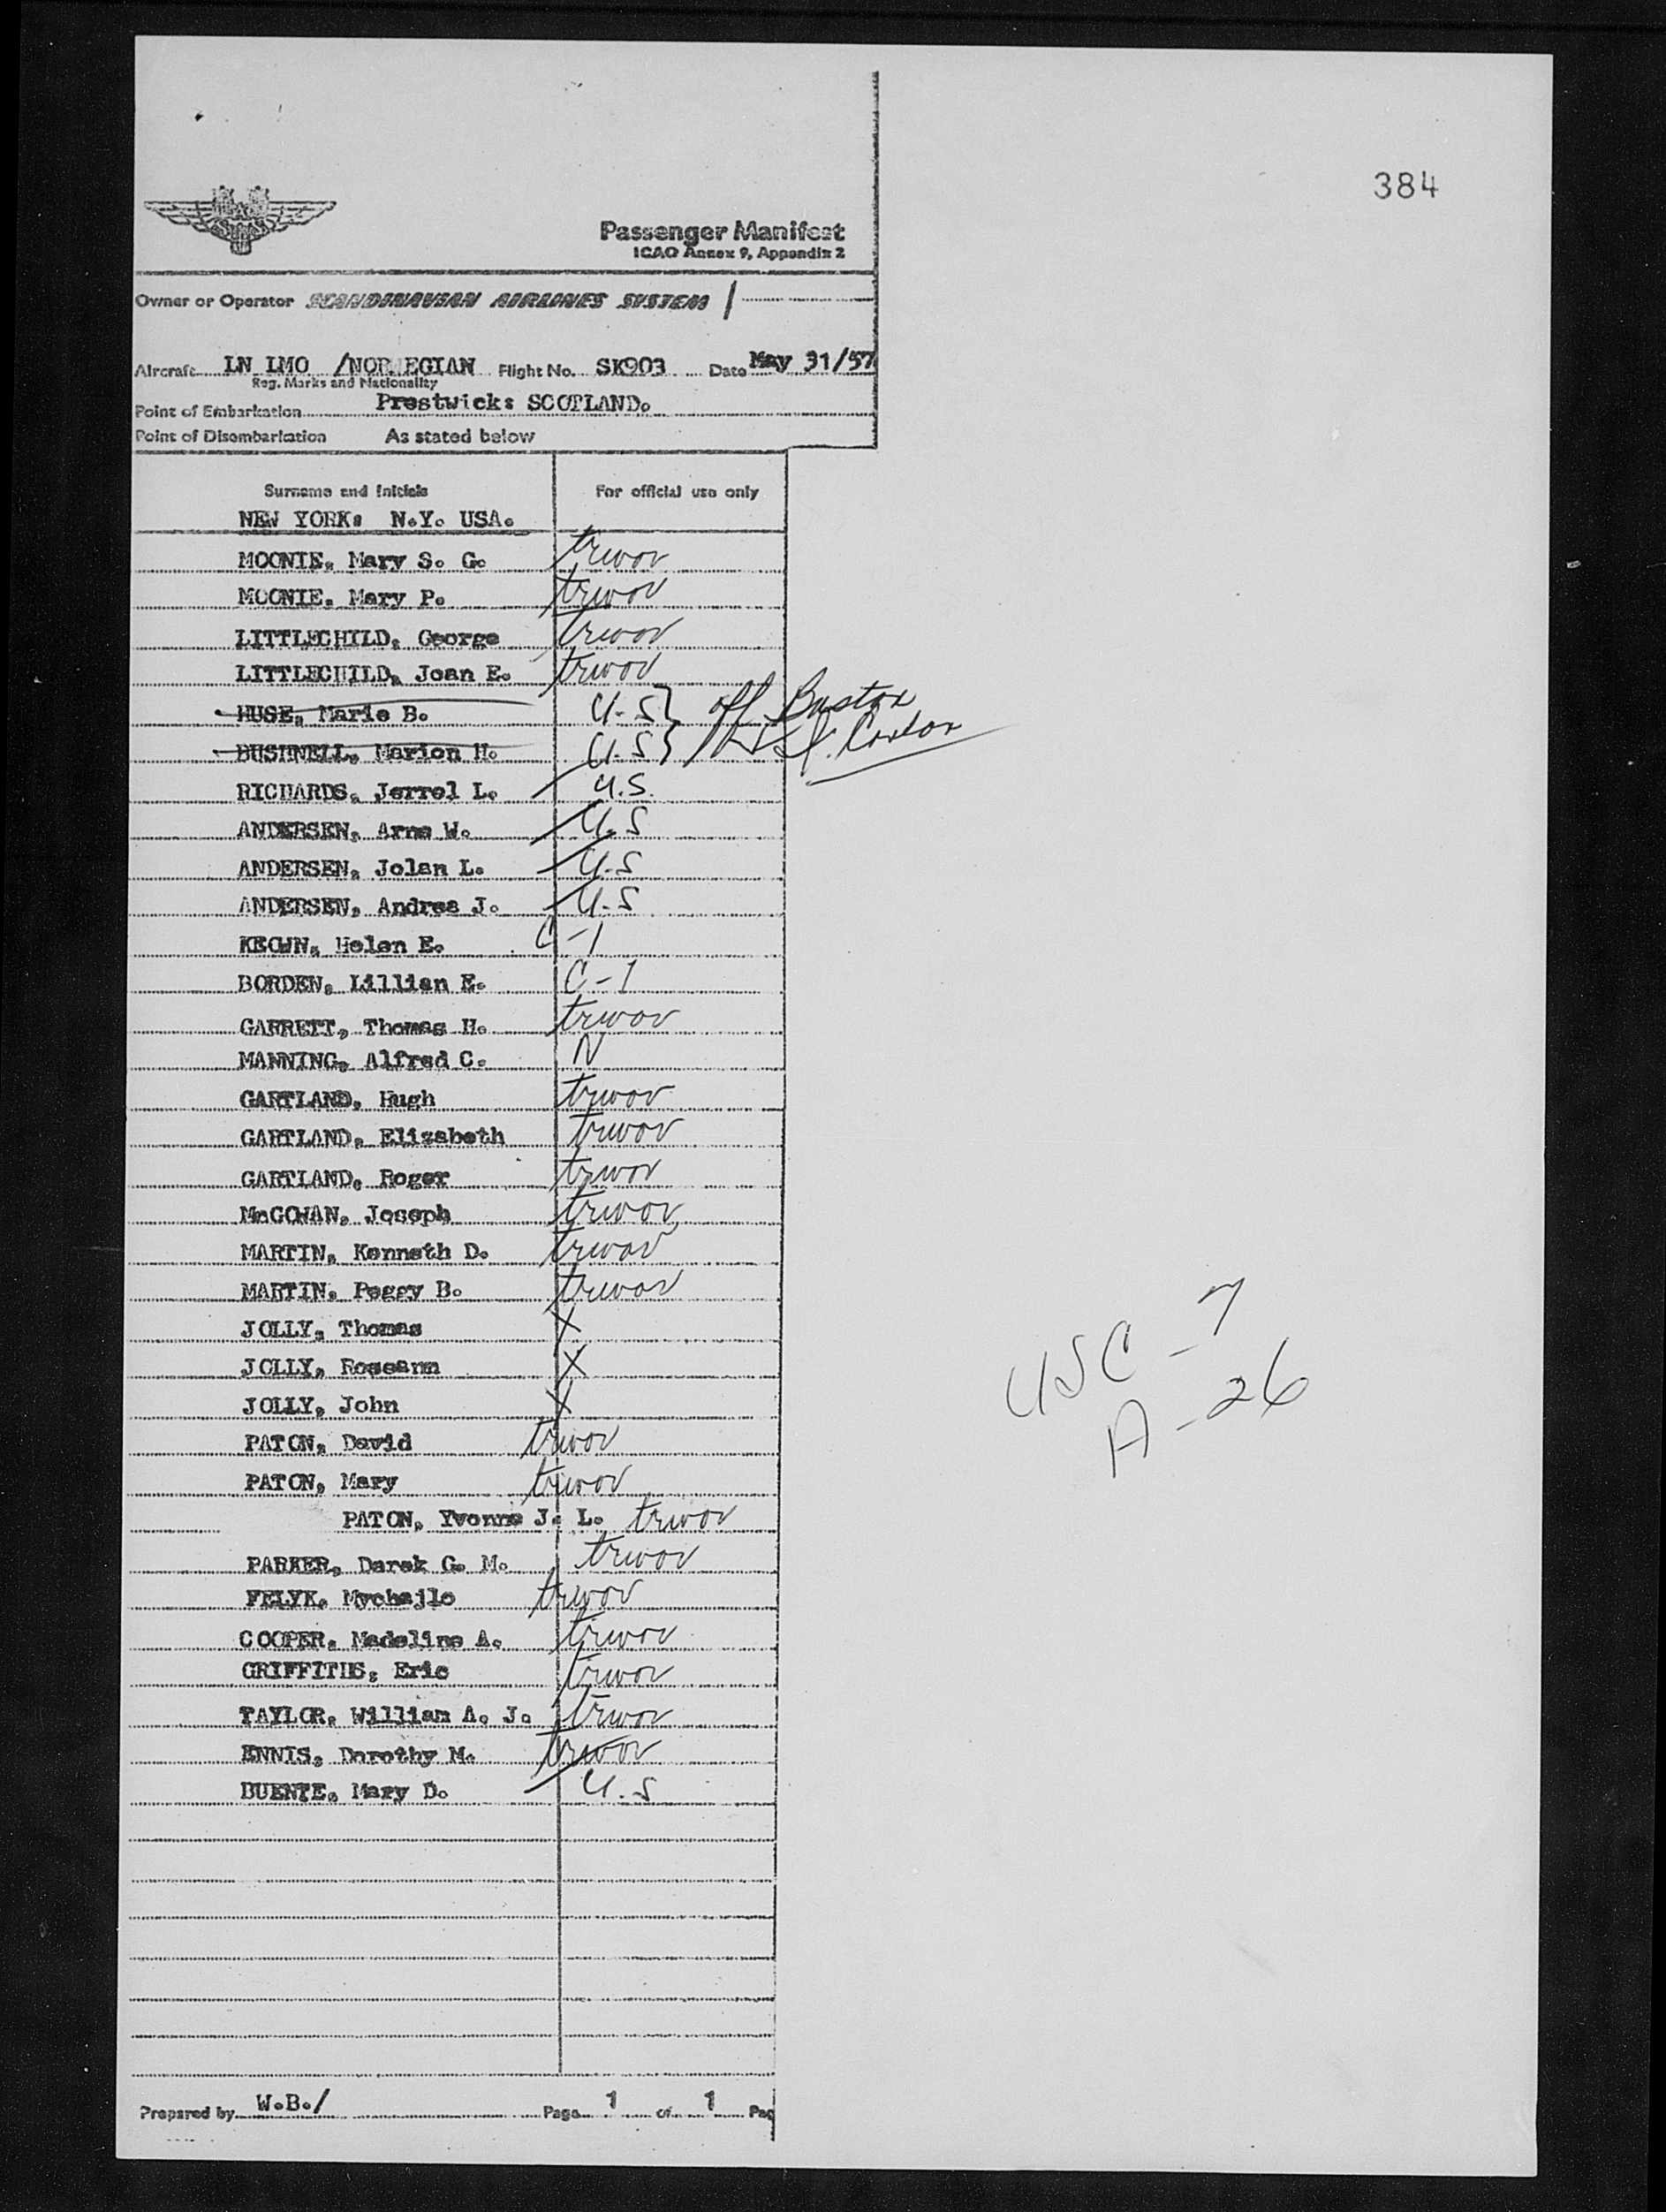 384
Passenger Manifest
ICAO Annex 9, Appendix 2
Owner or Operator SCANDINAVIAN AIRLINES SYSTEM /
Aircraft LN LMO /NORWEGIAN Flight No. SK903 Date May 31/57
Reg. Marks and Nationality
Point of Embarkation Prestwick: SCOTLAND.
Point of Disembarkation As stated below
Surname and Initials For official use only
NEW YORK: N.Y. USA.
MOONIE, Mary S. G. trwov
MOONIE, Mary P. trwov
LITTLECHILD, George trwov
LITTLECHILD, Joan E. trwov
HUSE, Marie B. U.S } off Boston
BUSHNELL, Marion H. U.S }
RICHARDS, Jerrol L. U.S.
ANDERSEN, Arne W. U.S
ANDERSEN, Jolan L. U.S
ANDERSEN, Andrea J. U.S
KEOWN, Helen E. C-1
BORDEN, Lillian E. C-1
GARRETT, Thomas H. trwov
MANNING, Alfred C. N
GARTLAND, Hugh trwov
GARTLAND, Elizabeth trwov
GARTLAND, Roger trwov
McGOWAN, Joseph trwov
MARTIN, Kenneth D. trwov
MARTIN, Peggy B. trwov
JOLLY, Thomas X
JOLLY, Roseann X
JOLLY, John X
PATON, David trwov
PATON, Mary trwov
PATON, Yvonne J. L. trwov
PARKER, Darek G. M. trwov
FELYK, Mychajlo trwov
COOPER, Madeline A. trwov
GRIFFITHS, Eric trwov
TAYLOR, William A. J. trwov
ENNIS, Dorothy M. trwov
BUENTE, Mary D. U.S
USC - 7
A - 26
Prepared by W.B./ Page 1 of 1 Pag